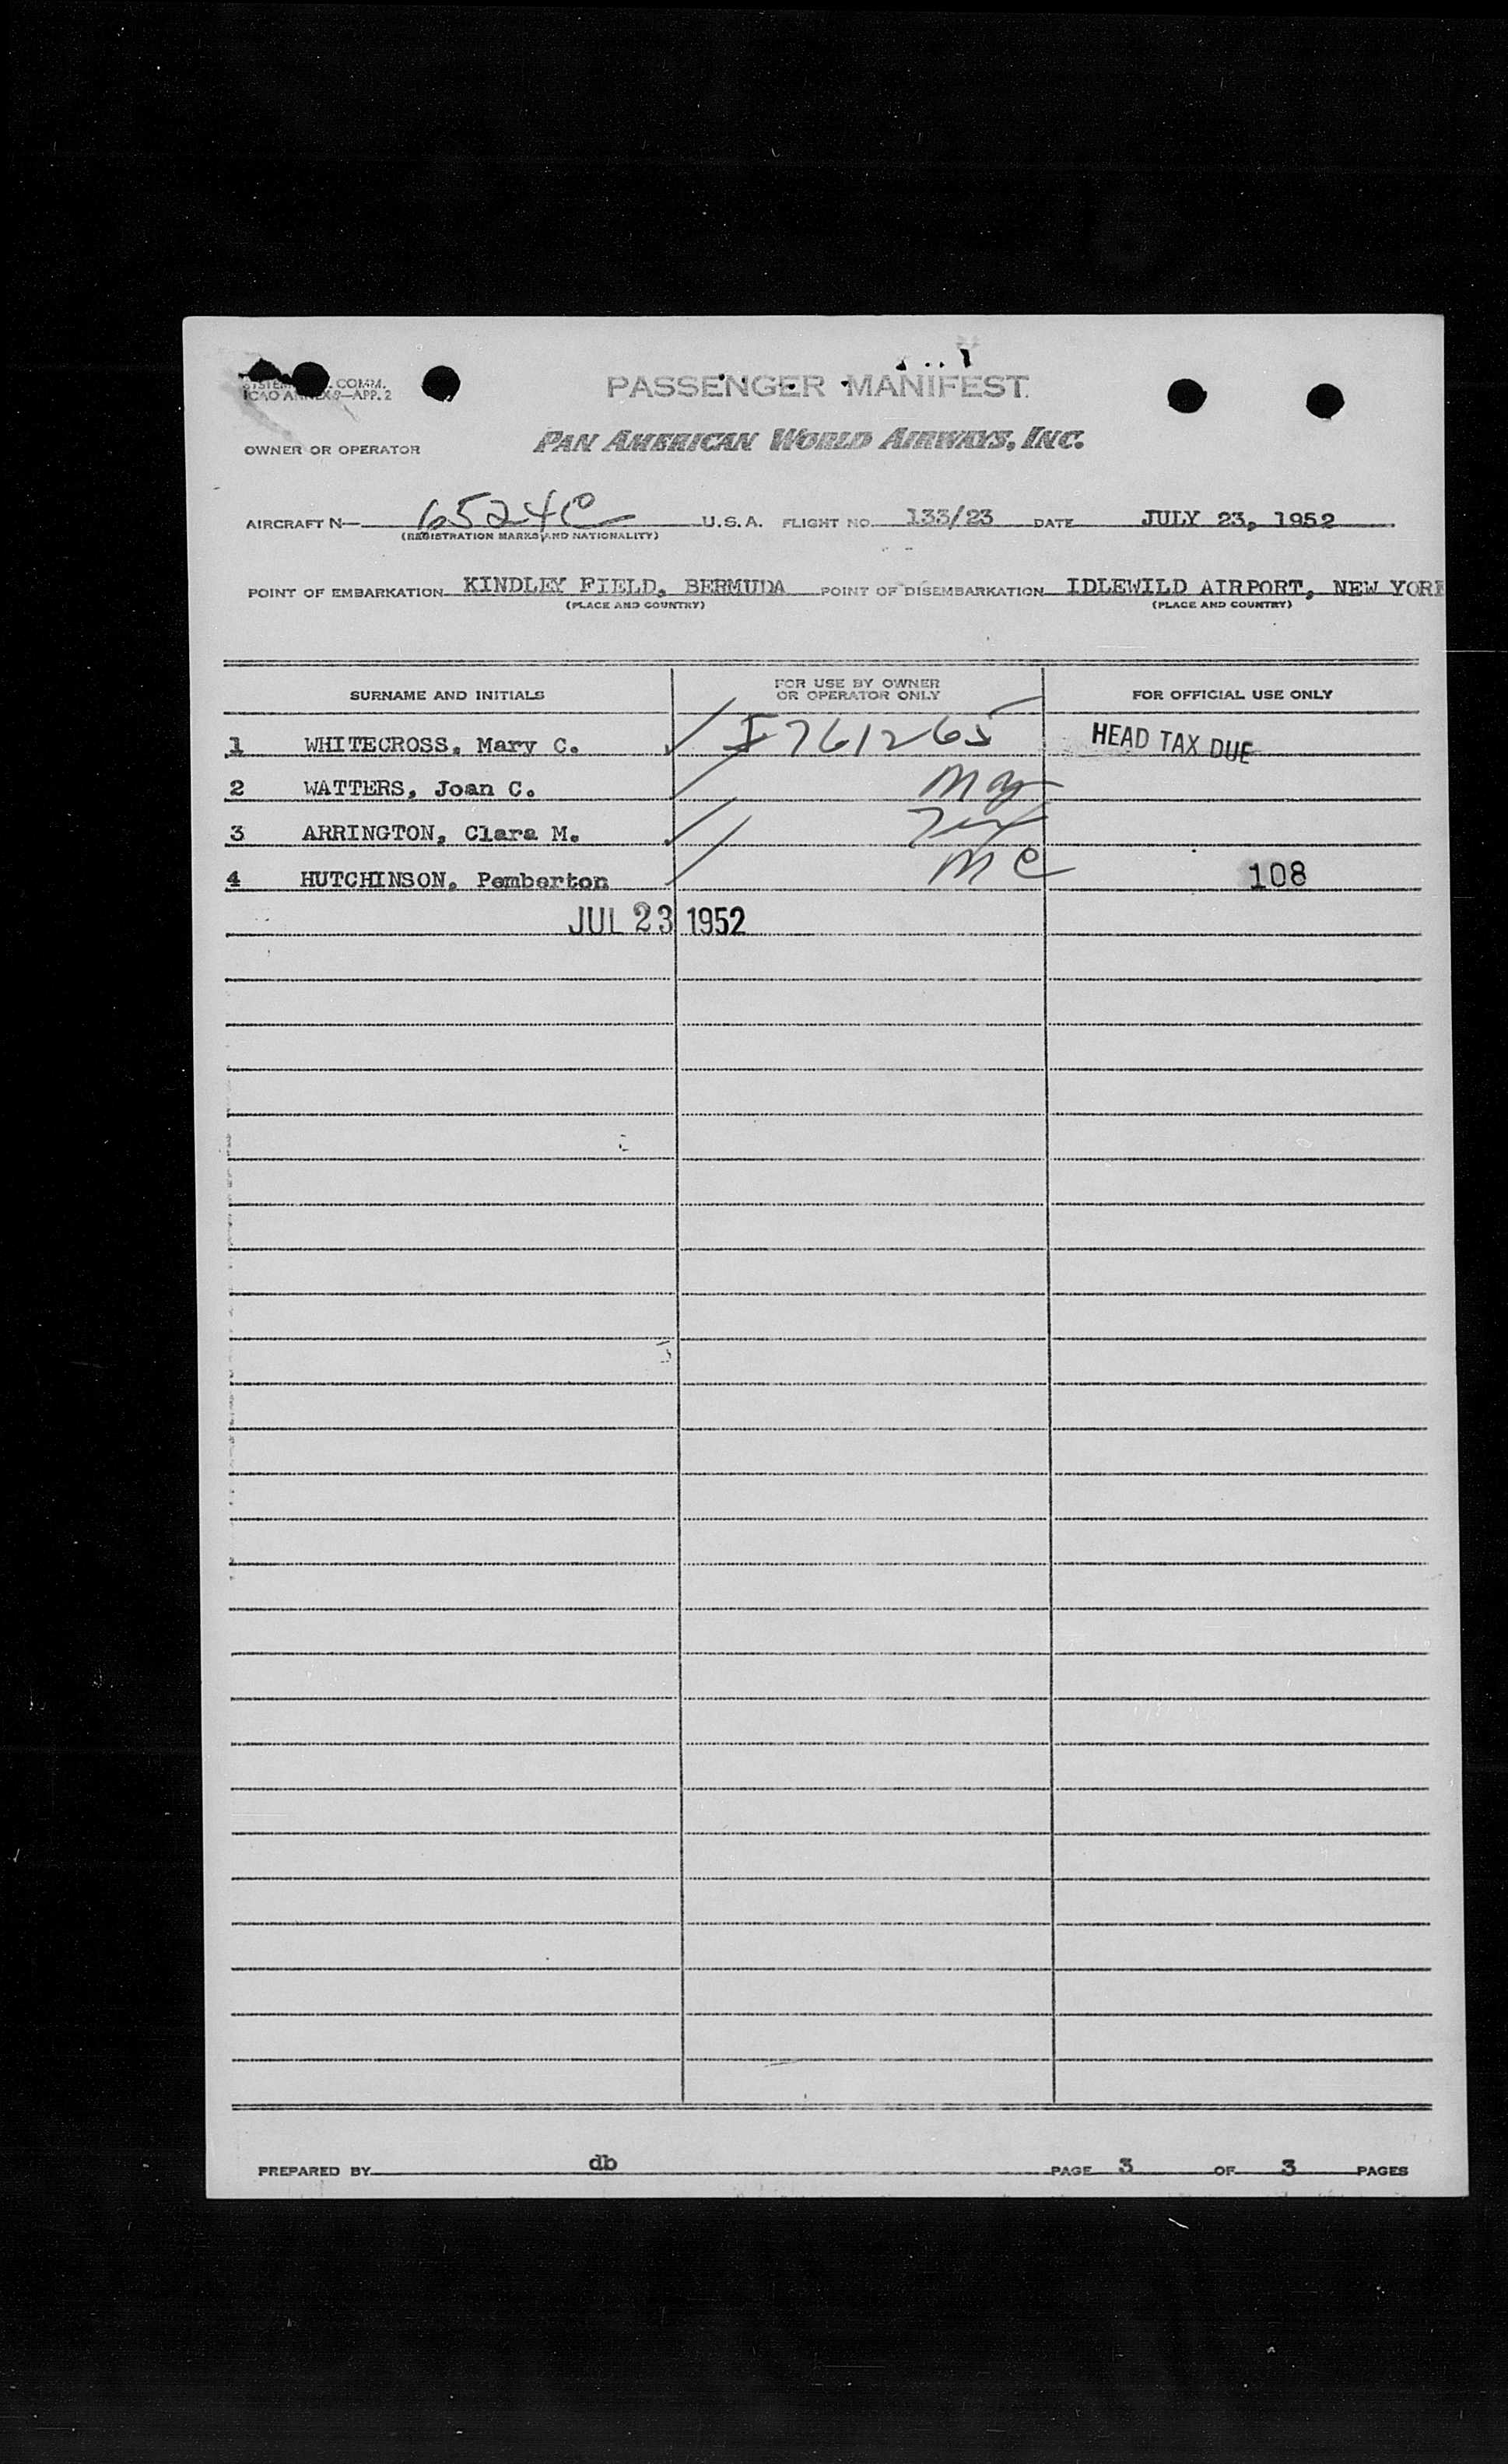 PASSENGER MANIFEST
COMM.
ICAO ANNEX 9—APP. 2
PAN AMERICAN WORLD AIRWAYS, INC.
OWNER OR OPERATOR
AIRCRAFT N— 6524C U.S.A. FLIGHT NO. 133/23 DATE JULY 23, 1952
(REGISTRATION MARKS AND NATIONALITY)
POINT OF EMBARKATION KINDLEY FIELD, BERMUDA POINT OF DISEMBARKATION IDLEWILD AIRPORT, NEW YORK
(PLACE AND COUNTRY) (PLACE AND COUNTRY)
SURNAME AND INITIALS FOR USE BY OWNER OR OPERATOR ONLY FOR OFFICIAL USE ONLY
1 WHITECROSS, Mary C. I 761265 HEAD TAX DUE
2 WATTERS, Joan C.
3 ARRINGTON, Clara M.
4 HUTCHINSON, Pemberton 108
JUL 23 1952
PREPARED BY db PAGE 3 OF 3 PAGES